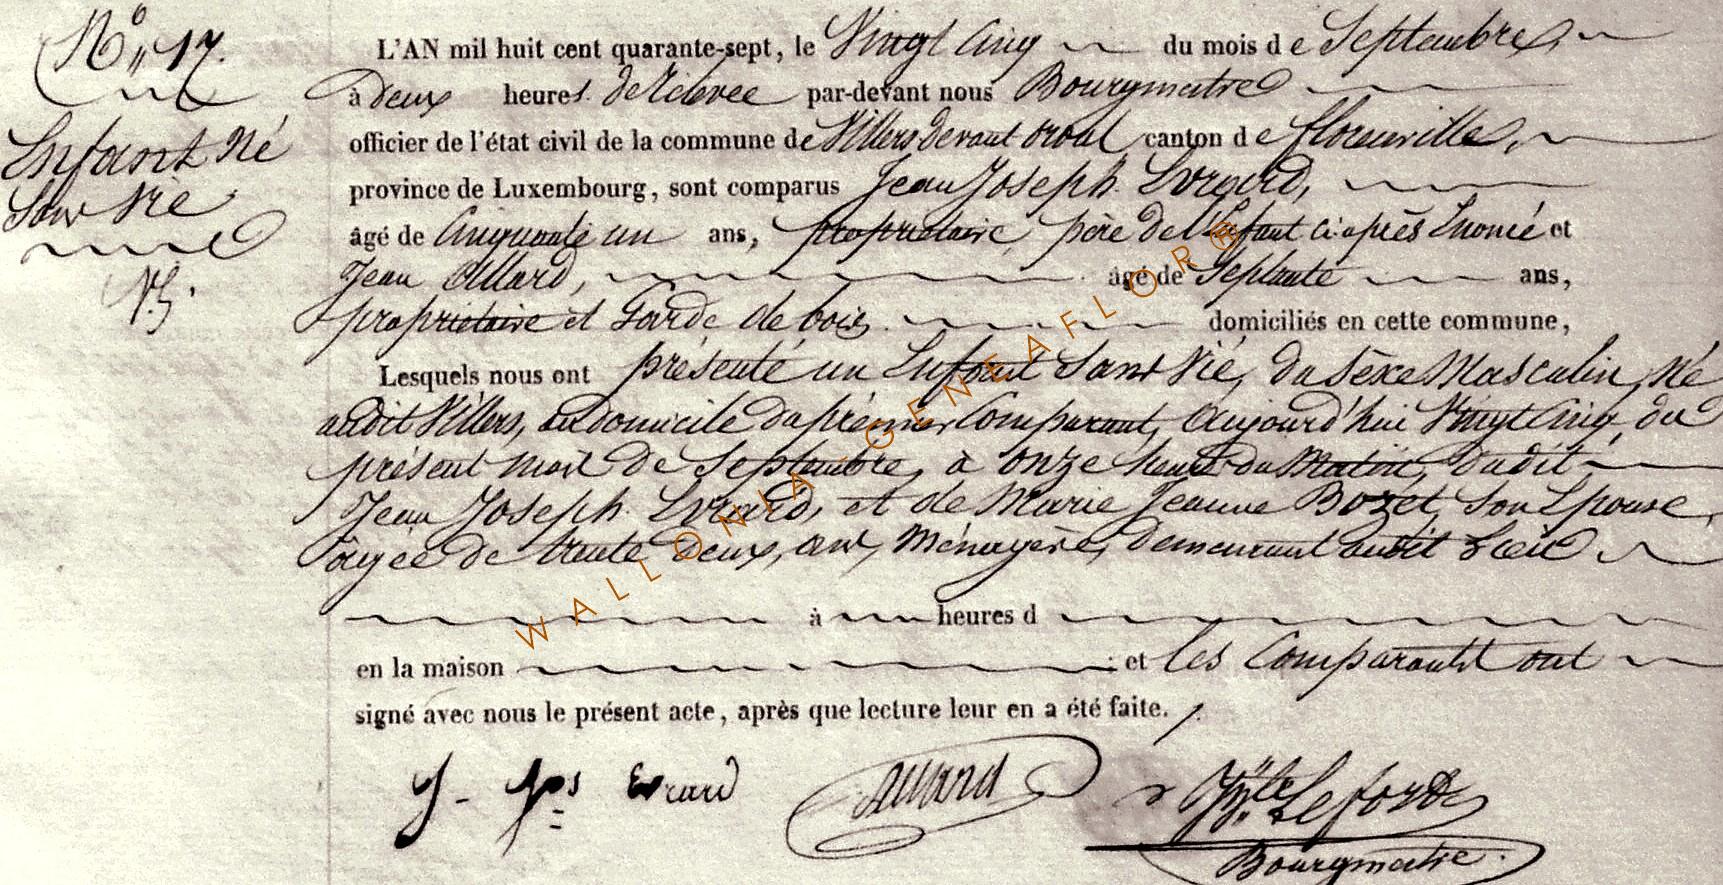 N° 17.
Enfant Né
Sans Vie
L'AN mil huit cent quarante-sept, le Vingt Cinq du mois d e Septembre,
à deux heures. de Rélévée par-devant nous Bourgmestre
officier de l'état civil de la commune de Villers devant orval canton d e florenville,
province de Luxembourg, sont comparus Jean Joseph Evrard,
âgé de Cinquante un ans, propriétaire, père de l'Enfant Ci-après Enoncé et
Jean Allard, âgé de Septante ans,
propriétaire et Garde de bois, domiciliés en cette commune,
Lesquels nous ont présenté un Enfant Sans Vie, du Séxe Masculin, Né
audit Villers, au domicile du prémier Comparant, aujourd'hui Vingt Cinq du
présent mois de Septembre, à onze heures du Matin, dudit
Jean Joseph Evrard, et de Marie Jeanne Bozet, Son Epouse,
âgée de trente deux, ans, Ménagère, demeurant audit Lieu
à heures d
en la maison : et les Comparants ont
signé avec nous le présent acte, après que lecture leur en a été faite.
J - Jos Evrard Allard Lefort
Bourgmestre.
WALLONIA GENEAFLOR ®